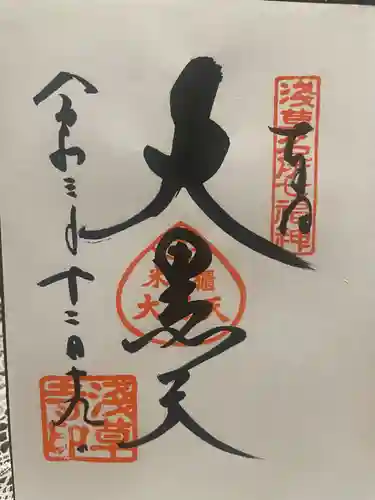 浅草名所七福神
奉拝
大黒天
米櫃
大黒天
令和三年十二月十九日
浅草寺印